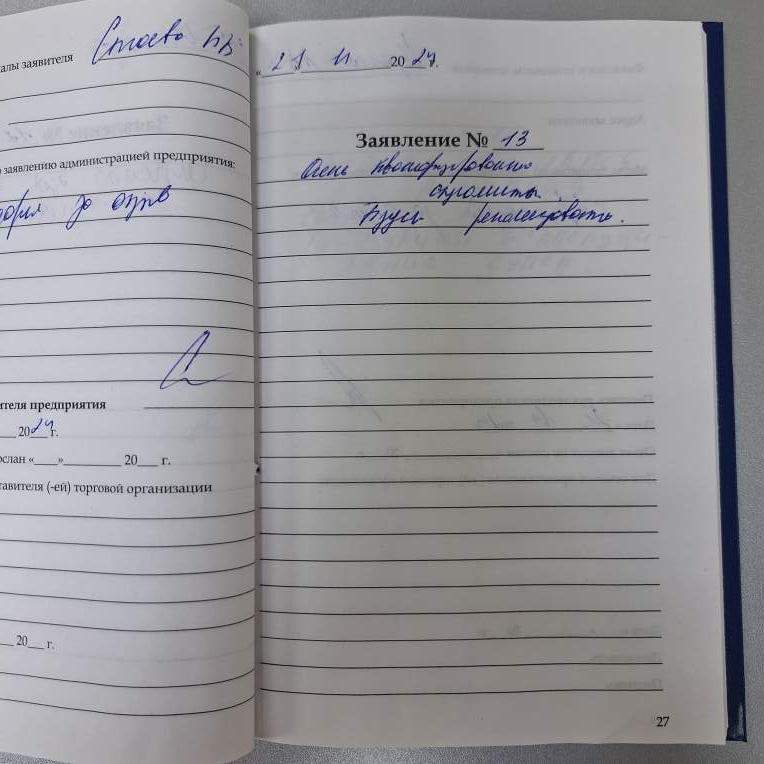 алы заявителя
заявлению администрацией предприятия:
за отзыв
ителя предприятия
2024 г.
ослан «___»________ 20___ г.
тавителя (-ей) торговой организации
20___ г.
« 29 » 11 2024 г.
Заявление № 13
Очень квалифицированно
Буду рекомендовать.
27